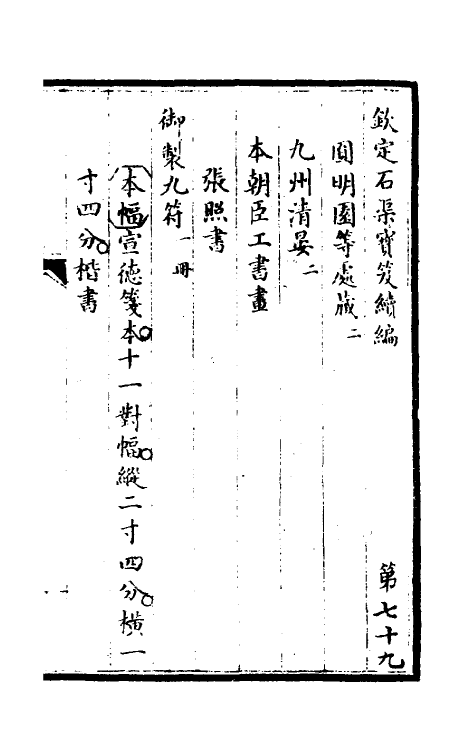 欽定石渠寶笈續編 第七十九
圓明園等處藏二
九州清晏二
本朝臣工書畫
張照書
御製九符一冊
本幅宣德箋本十一對幅縱二寸四分橫一
寸四分楷書